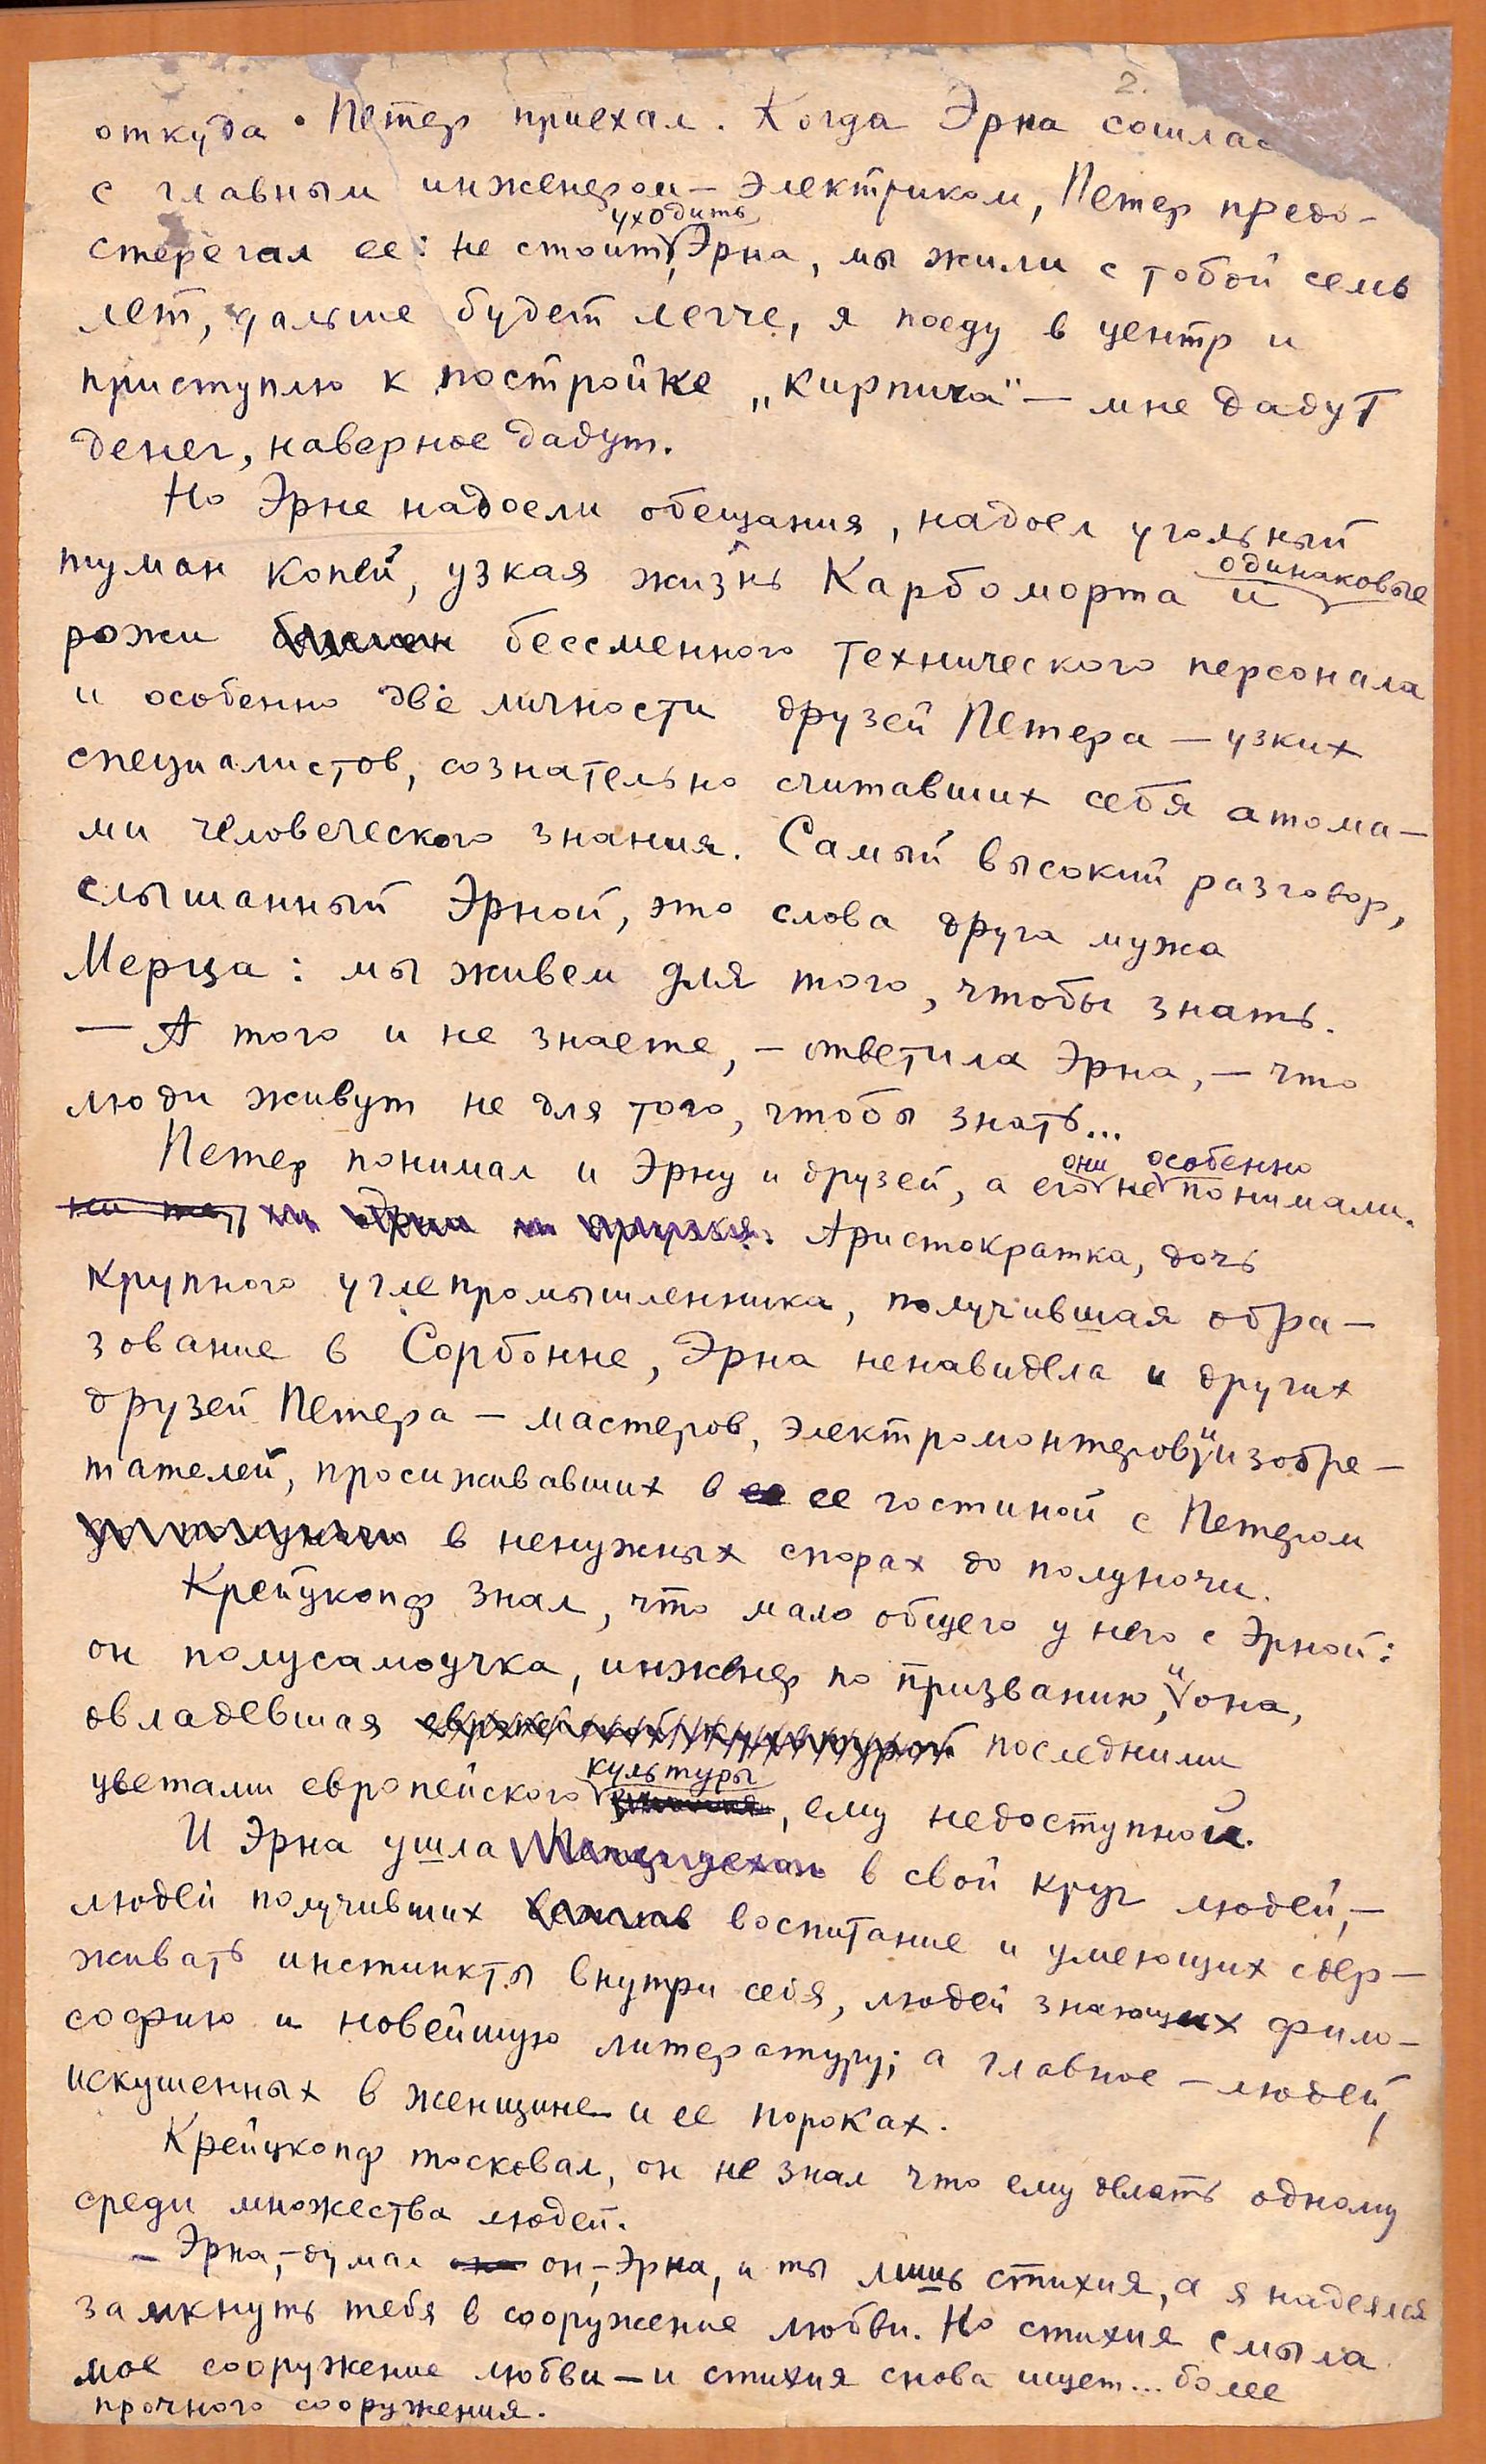 2.
откуда Петер приехал. Когда Эрна сошлас
с главным инженером – электриком, Петер предо-
уходить
стерегал ее: не стоит, Эрна, мы жили с тобой семь
лет, дальше будет легче, я поеду в центр и
приступлю к постройке „кирпича" – мне дадут
денег, наверное дадут.
Но Эрне надоели обещания, надоел угольный
туман копей, узкая жизнь Карбоморта и одинаковые
рожи бессменного технического персонала
и особенно две личности друзей Петера – узких
специалистов, сознательно считавших себя атома-
ми человеческого знания. Самый высокий разговор,
слышанный Эрной, это слова друга мужа
Мерца: мы живем для того, чтобы знать.
– А того и не знаете, – ответила Эрна, – что
люди живут не для того, чтобы знать...
Петер понимал и Эрну и друзей, а его они не особенно понимали.
ни Эрна ни друзья. Аристократка, дочь
крупного углепромышленника, получившая обра-
зование в Сорбонне, Эрна ненавидела и других
друзей Петера – мастеров, электромонтеров и изобре-
тателей, просиживавших в ее гостиной с Петером
в ненужных спорах до полуночи.
Крейцкопф знал, что мало общего у него с Эрной:
он полусамоучка, инженер по призванию, и она,
овладевшая европейской культурой последними
цветами европейского культуры, ему недоступной.
И Эрна ушла в свой круг людей, –
людей получивших воспитание и умеющих сдер-
живать инстинкты внутри себя, людей знающих фило-
софию и новейшую литературу; а главное – людей,
искушенных в женщине и ее пороках.
Крейцкопф тосковал, он не знал что ему делать одному
среди множества людей.
– Эрна, – думал он, – Эрна, и ты лишь стихия, а я надеялся
замкнуть тебя в сооружение любви. Но стихия смыла
мое сооружение любви – и стихия снова ищет... более
прочного сооружения.